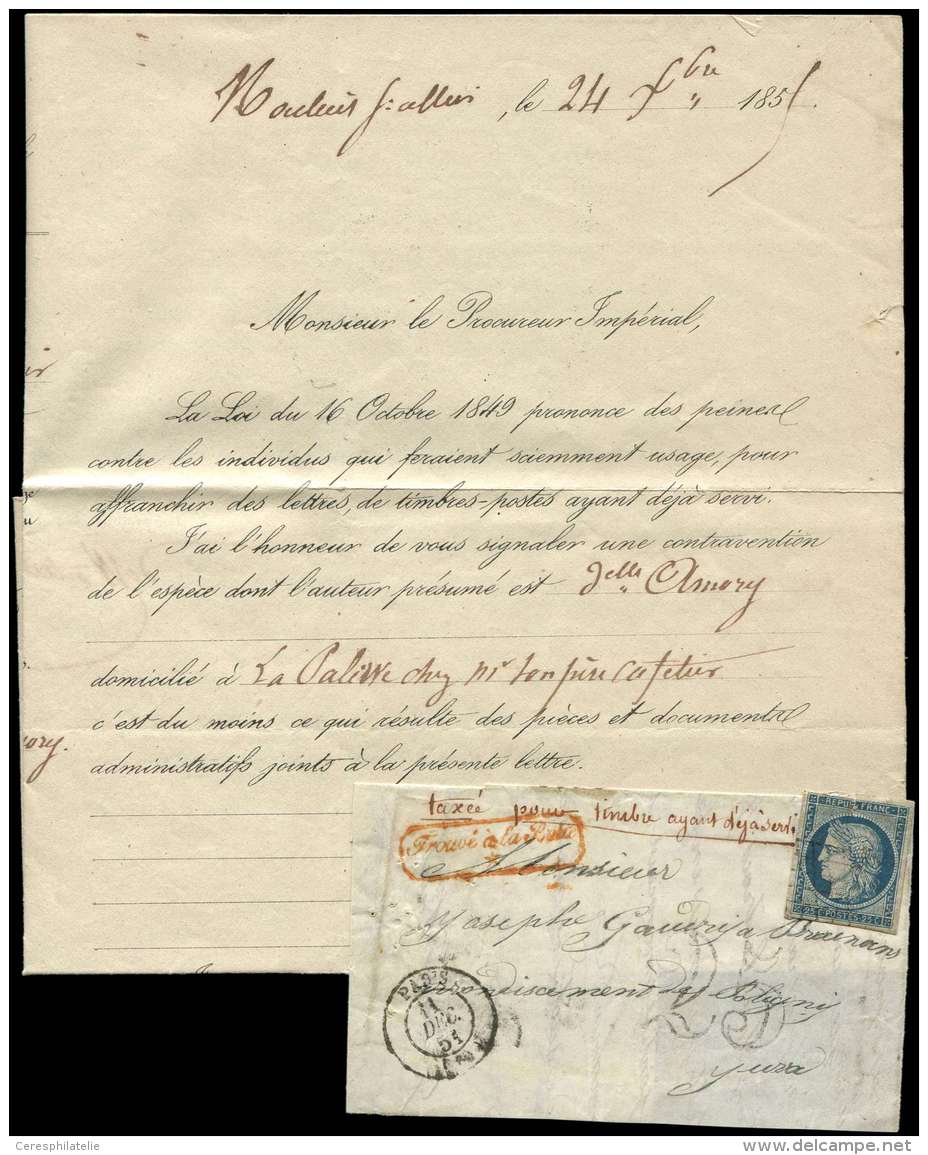 Moulins s/ allier, le 24 Xbre 1855.
Monsieur le Procureur Impérial,
La Loi du 16 Octobre 1849 prononce des peines
contre les individus qui feraient sciemment usage, pour
affranchir des lettres, de timbres-postes ayant déjà servi.
J'ai l'honneur de vous signaler une contravention
de l'espèce dont l'auteur présumé est Delle Amory
domicilié à La Palisse chez Mr son père cafetier
c'est du moins ce qui résulte des pièces et documents
administratifs joints à la présente lettre.
taxée pour timbre ayant déjà servi
Trouvé à la Boîte
Monsieur
Joseph
arrondissement de Poligni
Jura
REPUB FRANC
25 C POSTES 25 C
PARIS
11
DEC.
51
25
Ceresphilatelie
delcampe.net